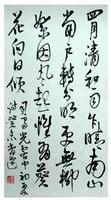 四月清和雨乍晴南山
當戶轉分明更無柳
絮因風起惟有葵
花向日傾
司馬光詩客中初夏